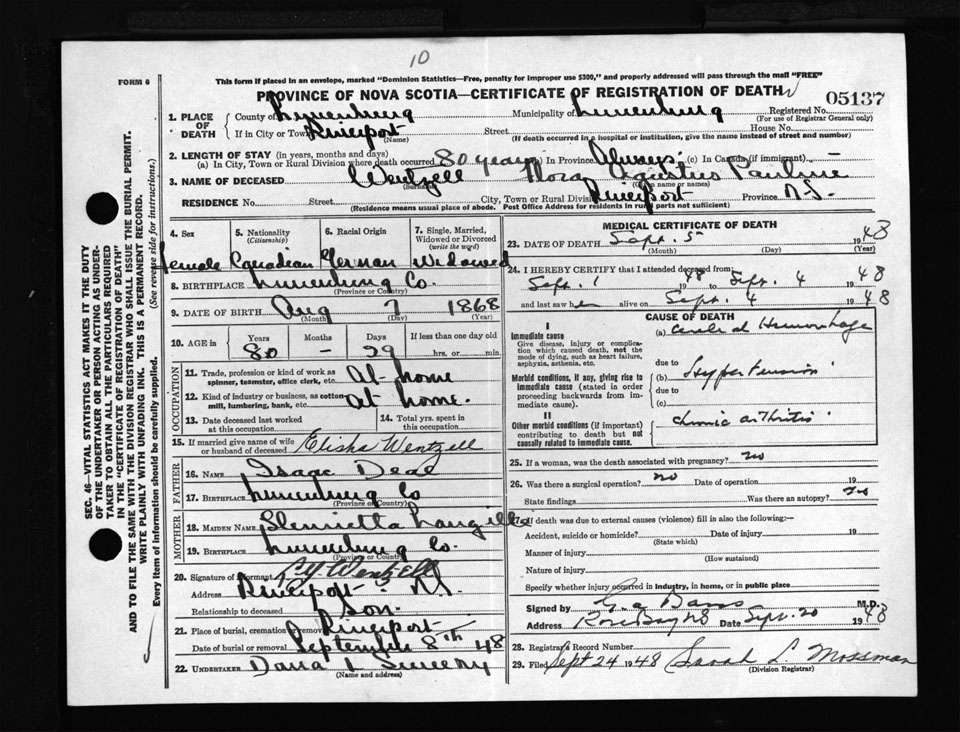 10
FORM 6
This form if placed in an envelope, marked "Dominion Statistics—Free, penalty for improper use $300," and properly addressed will pass through the mail "FREE"
PROVINCE OF NOVA SCOTIA—CERTIFICATE OF REGISTRATION OF DEATH
05137
1. PLACE OF DEATH County of Lunenburg Municipality of Lunenburg Registered No. (For use of Registrar General only)
If in City or Town Riverport (Name) Street House No.
(If death occurred in a hospital or institution, give the name instead of street and number)
2. LENGTH OF STAY (in years, months and days)
(a) In City, Town or Rural Division where death occurred 80 years In Province Always (c) In Canada (if immigrant)
3. NAME OF DECEASED Wentzell Flora Pauline
(Surname) (Given name or names)
RESIDENCE No. Street City, Town or Rural Division Riverport Province N.S.
(Residence means usual place of abode. Post Office Address for residents in rural parts not sufficient)
4. Sex 5. Nationality (Citizenship) 6. Racial Origin 7. Single, Married, Widowed or Divorced (write the word)
Female Canadian German Widowed
8. BIRTHPLACE Lunenburg Co.
(Province or Country)
9. DATE OF BIRTH Aug 7 1868
(Month) (Day)
10. AGE in Years Months Days If less than one day old
80 – 29 hrs. or min.
OCCUPATION
11. Trade, profession or kind of work as spinner, teamster, office clerk, etc. At home
12. Kind of industry or business, as cotton mill, lumbering, bank, etc. At home.
13. Date deceased last worked at this occupation 14. Total yrs. spent in this occupation
15. If married give name of wife or husband of deceased Elisha Wentzell
FATHER
16. NAME Isaac Deal
17. BIRTHPLACE Lunenburg Co
(Province or Country)
MOTHER
18. MAIDEN NAME Henrietta Langille
19. BIRTHPLACE Lunenburg Co.
(Province or Country)
20. Signature of Informant Wentzell
Address Riverport N.S.
Relationship to deceased Son.
21. Place of burial, cremation or removal Riverport
Date of burial or removal September 8th 48
22. UNDERTAKER Dana L Sweeny
(Name and address)
MEDICAL CERTIFICATE OF DEATH
23. DATE OF DEATH Sept. 5 1948
(Month) (Day) (Year)
24. I HEREBY CERTIFY that I attended deceased from
Sept. 1 1948 to Sept. 4 1948
and last saw her alive on Sept. 4 1948
CAUSE OF DEATH
I
Immediate cause
Give disease, injury or complication which caused death, not the mode of dying, such as heart failure, asphyxia, asthenia, etc.
(a) Cerebral Hemorrhage
due to
Morbid conditions, if any, giving rise to immediate cause (stated in order proceeding backwards from immediate cause).
(b) Hypertension
due to
(c)
II
Other morbid conditions (if important) contributing to death but not causally related to immediate cause.
Chronic arthritis
25. If a woman, was the death associated with pregnancy? no
26. Was there a surgical operation? no Date of operation 19
State findings Was there an autopsy? no
27. If death was due to external causes (violence) fill in also the following:—
Accident, suicide or homicide? Date of injury 19
(State which)
Manner of injury
(How sustained)
Nature of injury
Specify whether injury occurred in industry, in home, or in public place
Signed by M.D.
Address Rose Bay NS Date Sept. 20 1948
28. Registrar's Record Number
29. Filed Sept 24 1948 Sarah L. Mossman
(Division Registrar)
SEC. 46—VITAL STATISTICS ACT MAKES IT THE DUTY OF THE UNDERTAKER OR PERSON ACTING AS UNDERTAKER TO OBTAIN ALL THE PARTICULARS REQUIRED IN THE "CERTIFICATE OF REGISTRATION OF DEATH" AND TO FILE THE SAME WITH THE DIVISION REGISTRAR WHO SHALL ISSUE THE BURIAL PERMIT.
WRITE PLAINLY WITH UNFADING INK. THIS IS A PERMANENT RECORD.
Every item of information should be carefully supplied. (See reverse side for instructions.)